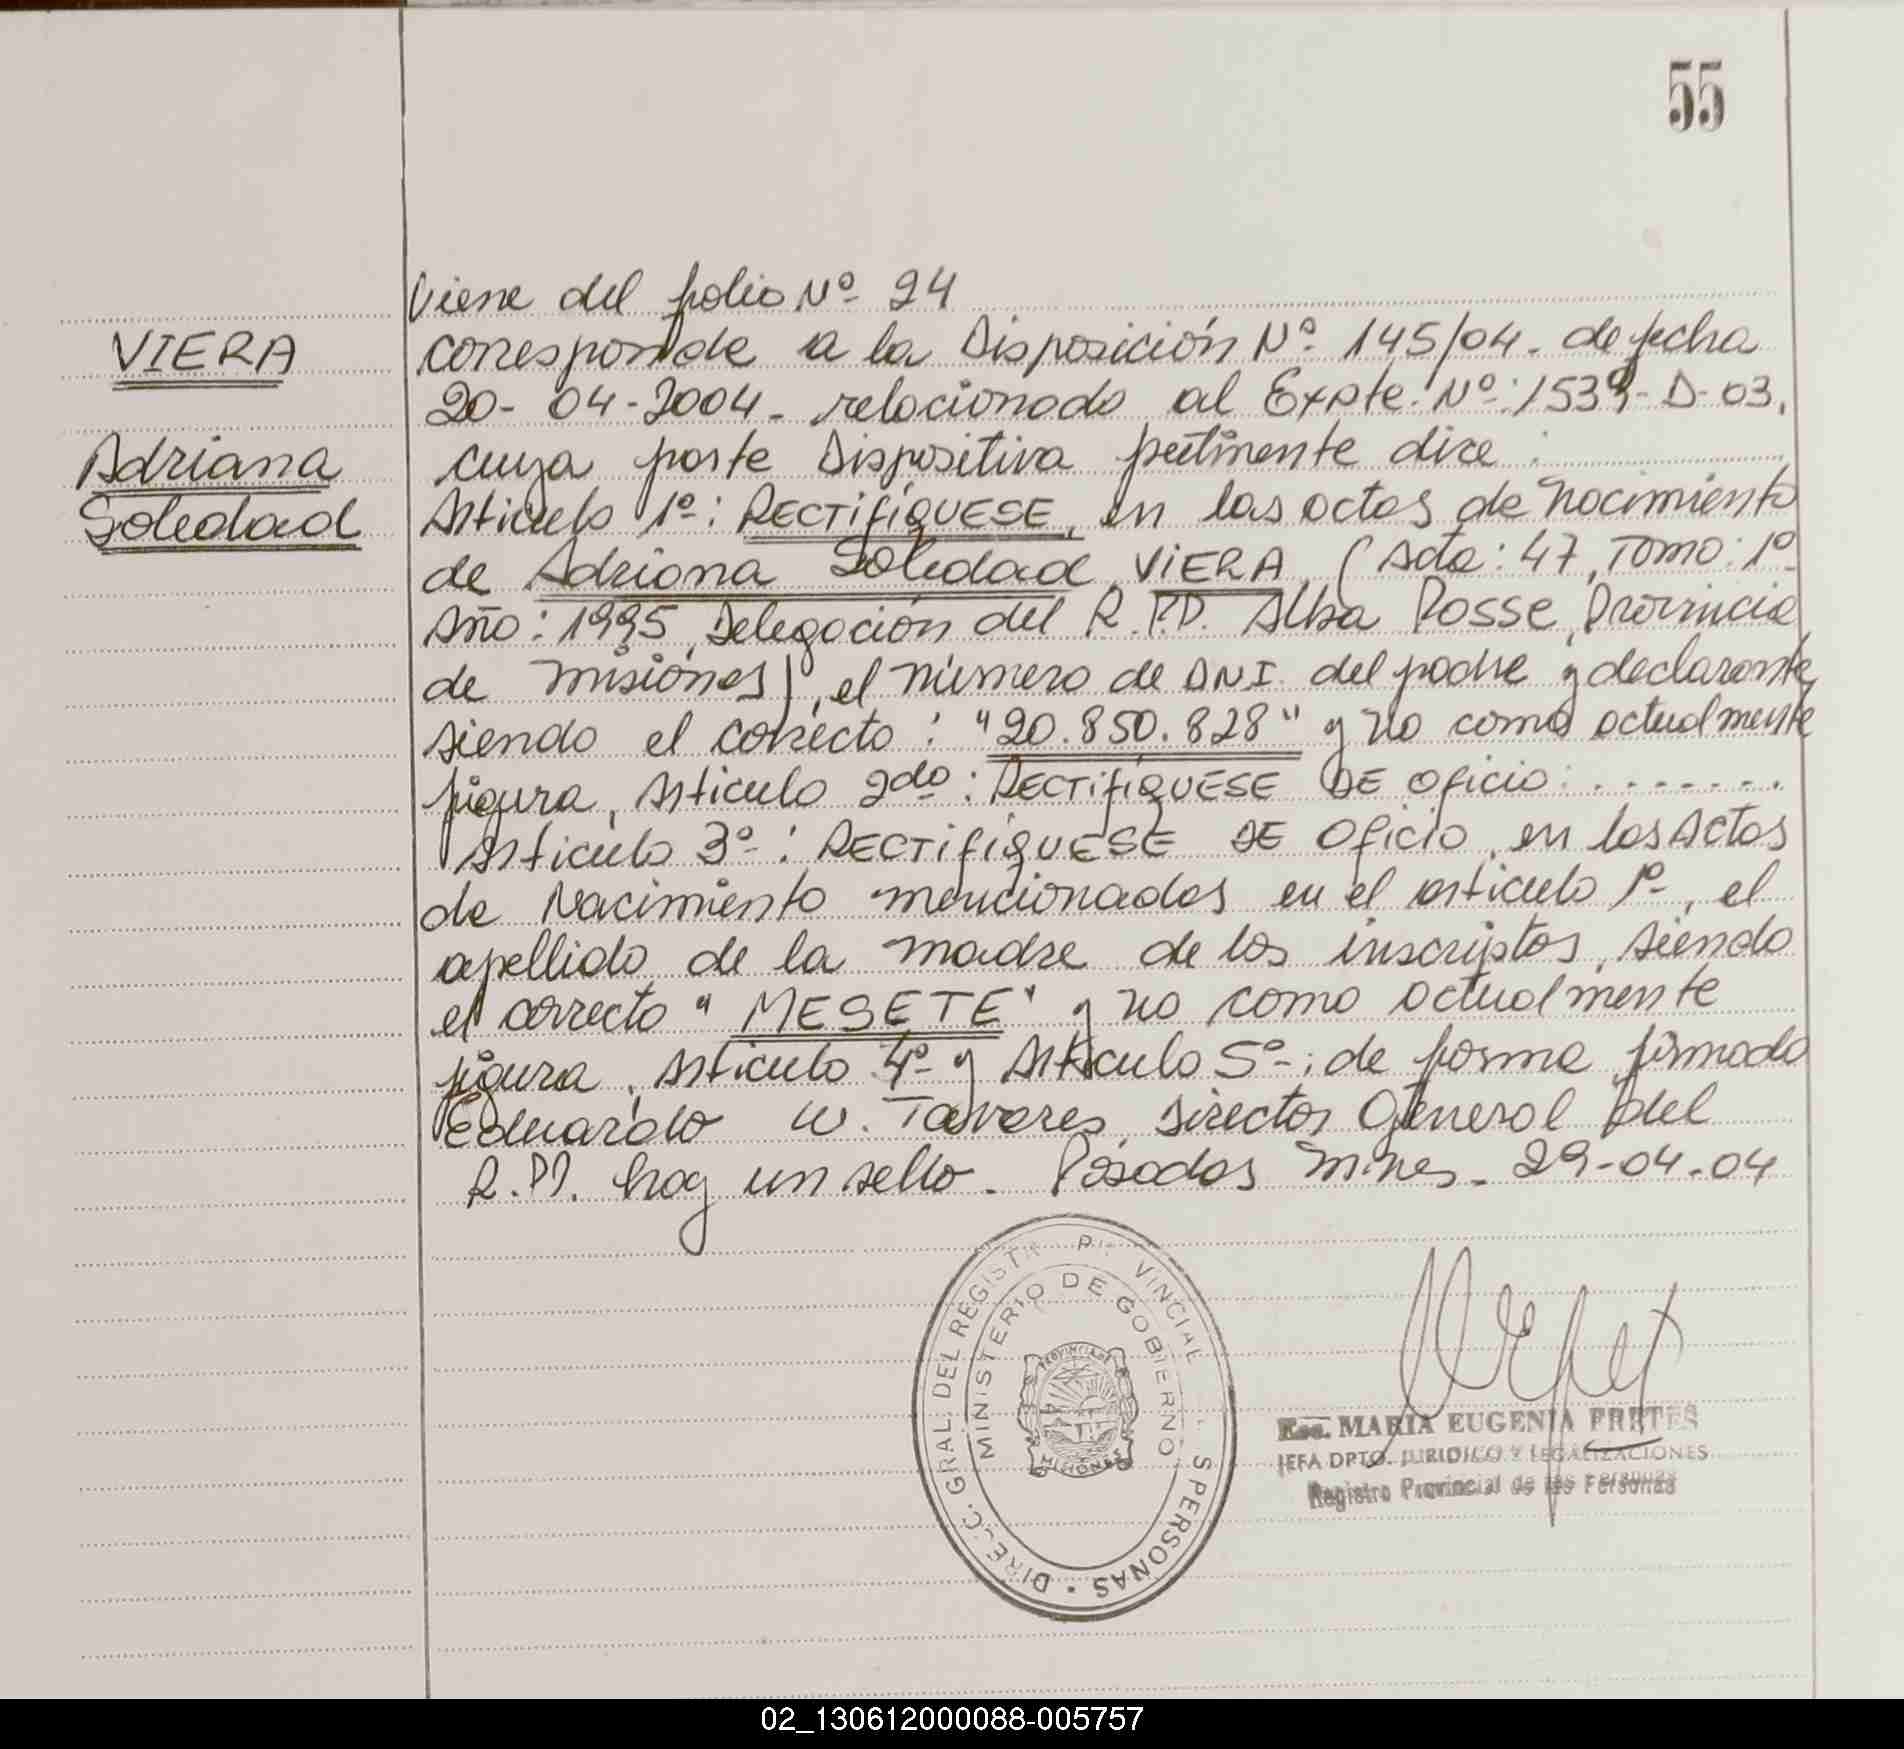 55
Viene del folio Nº 24
VIERA
Adriana
Soledad
corresponde a la Disposición Nº 145/04. de fecha
20-04-2004. relacionado al Expte. Nº: 1539-D-03,
cuya parte Dispositiva pertinente dice:
Artículo 1º: RECTIFÍQUESE, en las actas de nacimiento
de Adriana Soledad VIERA (Acta: 47, Tomo: 1º
Año: 1995, Delegación del R.P.P. Alba Posse, Provincia
de Misiones), el número de DNI. del padre y declarante,
siendo el correcto: "20.850.828" y no como actualmente
figura, Artículo 2do: RECTIFÍQUESE DE Oficio: ........
Artículo 3º: RECTIFÍQUESE DE Oficio, en las Actas
de Nacimiento mencionadas en el artículo 1º, el
apellido de la madre de los inscriptos, siendo
el correcto "MESETE" y no como actualmente
figura, Artículo 4º y Artículo 5º: de forma firmado
Eduardo W. Tavares, Director General del
R.PP. hay un sello. Posadas Mnes. 29-04-04
DIREC. GRAL. DEL REGISTR PR VINCIAL S PERSONAS
MINISTERIO DE GOBIERNO
PROVINCIA DE
MISIONES
Esc. MARIA EUGENIA PRETES
JEFA DPTO. JURIDICO Y LEGALIZACIONES
Registro Provincial de las Personas
02_130612000088-005757